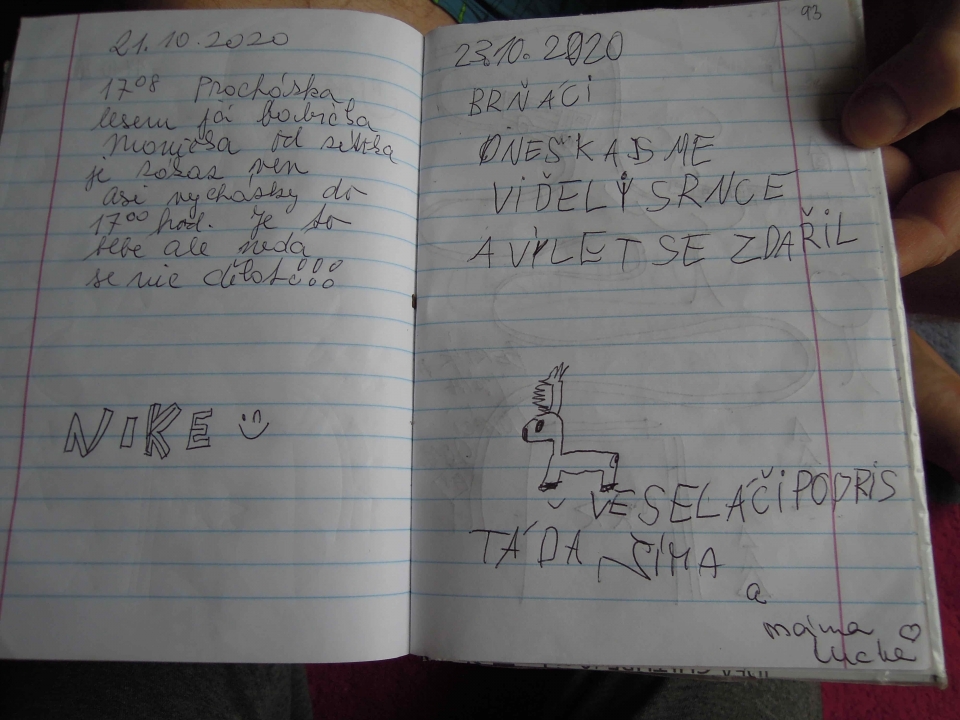 21.10.2020
17⁰⁸ Procházka
lesem já babička
Monička od rybka
je zákaz ven
asi vycházky do
17⁰⁰ hod. Je to
sebe ale nedá
se nic dělat!!!
NIKE
93
23.10.2020
BRŇÁCI
DNEŠKA JSME
VIĎELY SRNCE
A VÝLET SE ZDAŘIL
VESELÁČI PODRIS
TÁĎA ŠÍMA
a
majma
Lucka